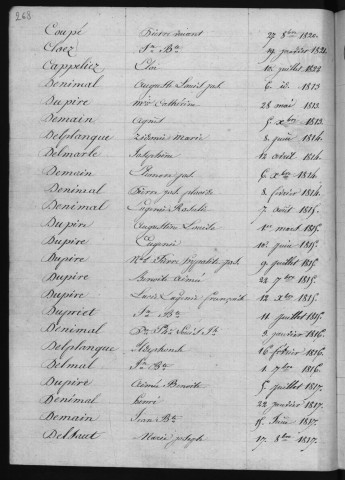 268
Coupé Pierre vincent 27 8bre 1820.
Claez Jn Bte 19 janvier 1821.
Cappeliez Eloi 10 juillet 1822
Denimal Auguste Louis jph 6 id. 1813
Dupire Mie Catherine 28 mai 1813.
Demain Agnès 5 Xbre 1813.
Delplanque Zidonie Marie 8 juin 1814.
Delmarle Joséphine 12 avril 1814.
Demain Clémence jph 6 Xbre 1814.
Denimal Pierre jph placide 8 février 1814.
Denimal Eugénie Isabelle 7 août 1815.
Dupire Augustine Louise 1er mars 1815.
Dupire Eugénie 10 juin 1815.
Dupire Pierre hypolite jph 9 juillet 1815.
Dupire Benoite aimée 22 7bre 1815.
Dupire Eugénie françoise 12 Xbre 1815.
Dupriet Jn Bte 11 juillet 1815
Denimal Louis Jh 2 janvier 1816
Delplanque Aldephonse 16 février 1816.
Delmal Jn Bte 1 7bre 1816.
Dupire Aimée Benoite 5 juillet 1817.
Denimal henri 22 janvier 1817.
Demain Jean Bte 15 Juin 1817.
Delsaut Marie joseph 17 8bre 1817.